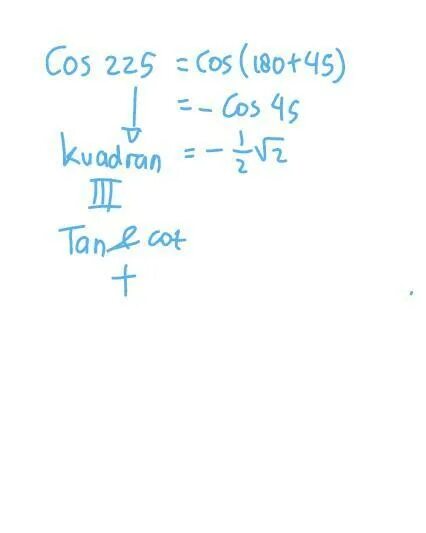 Cos 225 = Cos(180+45)
= - Cos 45
kuadran = - 1/2 √2
III
Tan & cot
+